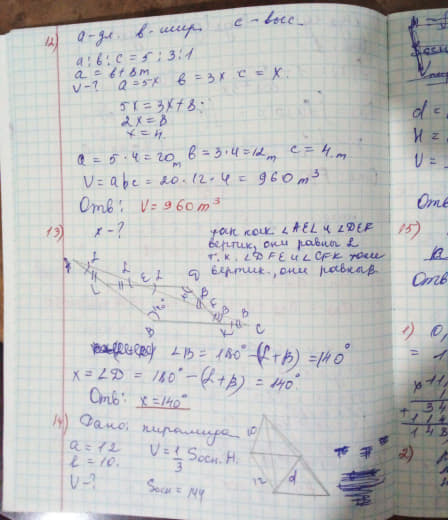 12) а-дл. в-шир. с-выс.
а:в:с = 5:3:1
а = в+8m
V-? а=5x в=3x с=x.
5x = 3x+8.
2x=8
x=4.
а=5·4=20m в=3·4=12m с=4m
V=авс=20·12·4=960m³
Отв: V=960m³
13) x-?
так как ∠AEL и ∠DEF
вертик, они равны L
т.к. ∠DFE и ∠CFK тоже
вертик., они равны B
∠B = 180°-(L+B) = 140°
x=∠D = 180°-(L+B) = 140°
Отв: x=140°
14) Дано: пирамида
а=12 V=1/3 Sосн. H.
l=10.
V-? Sосн=144
10
12
d
d=
H=
V=
Отв
15)
Отв
1) 0,
2)